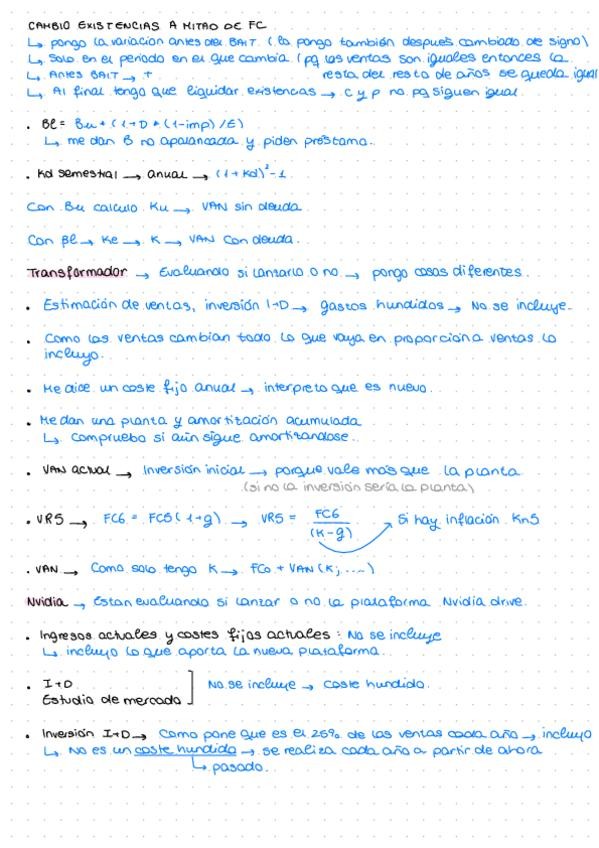 CAMBIO EXISTENCIAS A MITAD DE FC
↳ pongo la variación antes del BAIT (lo pongo también después cambiado de signo)
↳ Solo en el periodo en el que cambia (pq las ventas son iguales entonces la
↳ Antes BAIT → + resta del resto de años se queda igual
↳ Al final tengo que liquidar existencias → C y P no pq siguen igual
• Bl = Bu * (1+D * (1-imp) /E)
↳ me dan B no apalancada y piden préstamo.
• Kd semestral → anual → (1+Kd)²-1
Con Bu calculo Ku → VAN sin deuda
Con Bl → Ke → K → VAN con deuda.
Transformador → Evaluando si lanzarlo o no → pongo cosas diferentes.
• Estimación de ventas, inversión I+D → gastos hundidos → No se incluye.
• Como las ventas cambian todo lo que vaya en proporción a ventas lo
incluyo.
• Me dice un coste fijo anual → interpreto que es nuevo.
• Me dan una planta y amortización acumulada
↳ Compruebo si aún sigue amortizandose.
• VAN actual → Inversión inicial → porque vale más que la planta
(si no la inversión sería la planta)
• VR5 → FC6 = FC5(1+g) → VR5 = FC6 / (K-g) → Si hay inflación Kn5
• VAN → Como solo tengo K → FC0 + VAN(K; ....)
Nvidia → Están evaluando si lanzar o no la plataforma Nvidia drive.
• Ingresos actuales y costes fijos actuales: No se incluye
↳ incluyo lo que aporta la nueva plataforma.
• I+D
Estudio de mercado ] No se incluye → coste hundido.
• Inversión I+D → Como pone que es el 25% de las ventas cada año → incluyo
↳ No es un coste hundido → se realiza cada año a partir de ahora
↳ pasado.